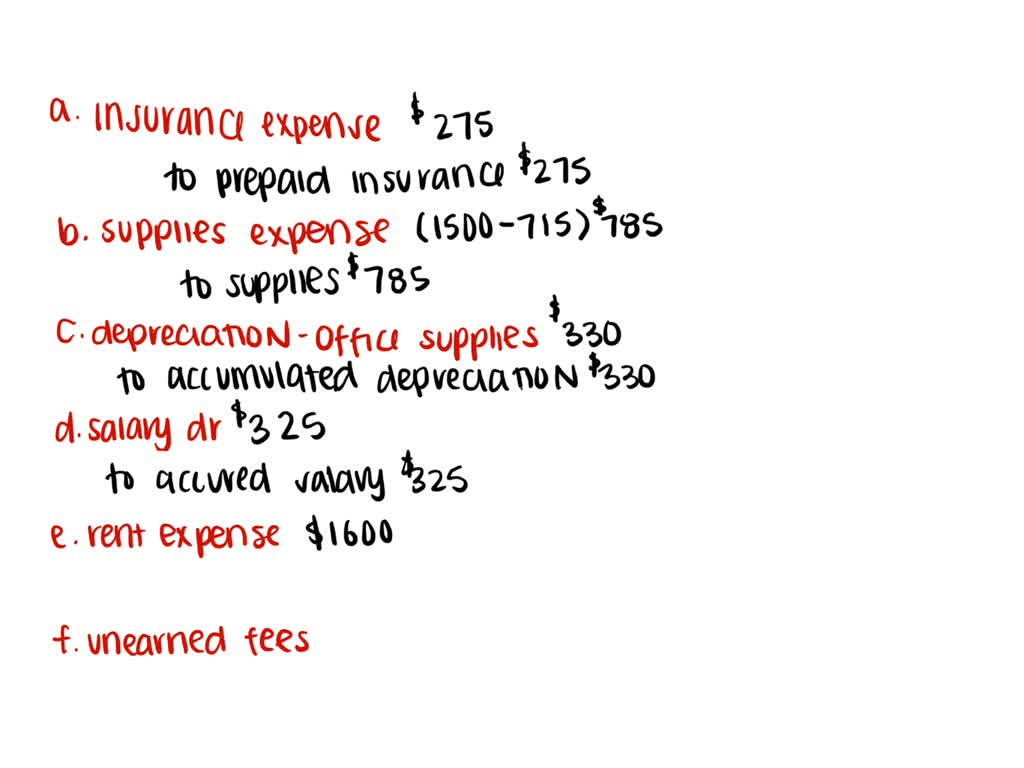 a. insurance expense $275
to prepaid insurance $275
b. supplies expense (1500-715) $785
to supplies $785
c. depreciation-office supplies $330
to accumulated depreciation $330
d. salary dr $325
to accured salary $325
e. rent expense $1600
f. unearned fees